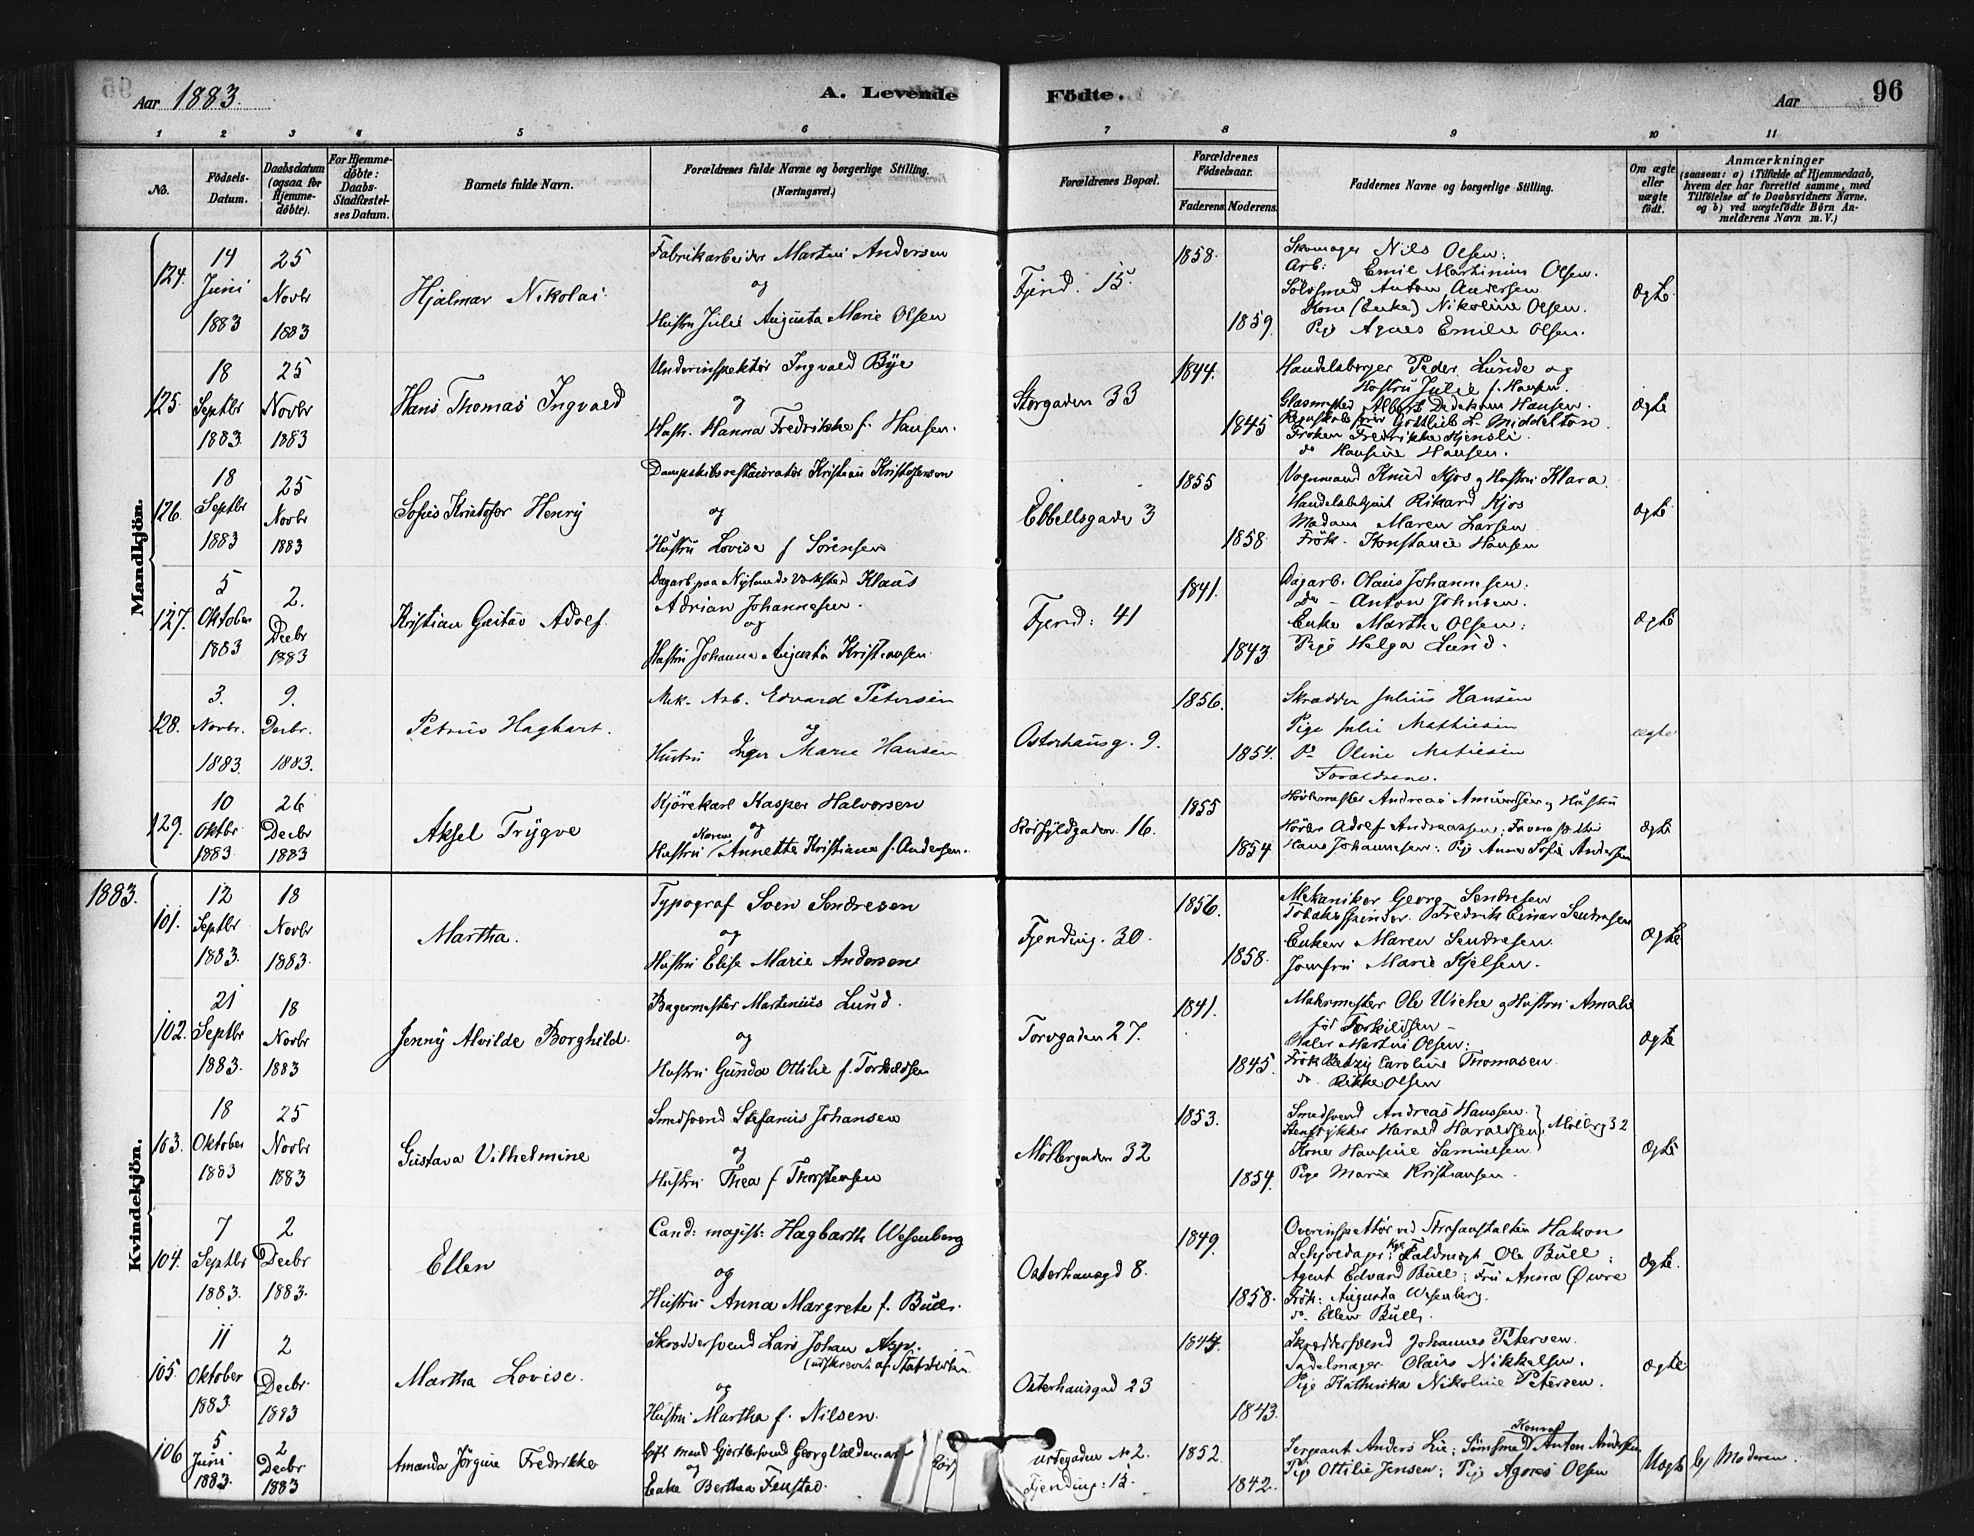 Aar 1883.
A. Levende Födte.
Aar
96
1 2 3 4 5 6 7 8 9 10 11
No.
Födsels-Datum.
Daabsdatum (ogsaa for Hjemme-döbte).
For Hjemme-döbte: Daabs-Stadfæstel-ses Datum.
Barnets fulde Navn.
Forældrenes fulde Navne og borgerlige Stilling. (Næringsvei.)
Forældrenes Bopæl.
Forældrenes Födselsaar.
Faderens. Moderens.
Faddernes Navne og borgerlige Stilling.
Om ægte eller uægte födt.
Anmærkninger
(saasom: a) i Tilfælde af Hjemmedaab, hvem der har forrettet samme, med Tilföielse af to Daabsvidners Navne, og b) ved uægtefödte Börn An-melderens Navn m. V.)
Mandkjön.
124. 14 Juni 1883 25 Novbr 1883
Hjalmar Nikolai
Fabrikarbeider Martin Andersen
og
Hustru Julie Augusta Marie Olsen
Fjerd. 15.
1858. 1859.
Skomager Nils Olsen:
Arb: Emil Martinius Olsen.
Sölvsmed Anton Andersen
Kone (Enke) Nikoline Olsen.
Pige Agnes Emilie Olsen.
Ægte.
125. 18 Septbr 1883. 25 Novbr 1883
Hans Thomas Ingvald
Underinspektör Ingvald Bye
og
Hustr. Hanna Fredrikke f. Hansen.
Storgaden 33
1844. 1845
Handelsborger Peder Lunde og
Hustru Julie f. Hansen.
Glasmester Albert Dedekam Hansen.
Gottlieb L. Middelton
Fröken Fredrikke Hjensli.
do Hansine Hansen.
Ægte
126. 18 Septbr 1883 25 Novbr 1883
Sofus Kristofer Henry
Dampskibsrestauratör Kristian Kristofersen
og
Hustru Lovise f Sörensen
Ebbellsgade 3
1855 1858
Vognmand Knud Kjos og Hustru Klara.
Handelsbetjent Rikard Kjos
Madam Maren Larsen
Frök. Konstance Hansen
Ægte.
127. 5 Oktober 1883 2. Decbr 1883
Kristian Gustav Adolf.
Dagarb. paa Nylands Værksted Klaus
Adrian Johannesen.
og
Hustru Johanne Augusta Kristiansen.
Fjerd: 41
1841. 1843
Dagarb. Olaus Johannesen.
do - Anton Johnsen.
Enke Marthe Olsen:
Pige Helga Lund.
Ægte
128. 3. Novbr. 1883. 9. Decbr. 1883.
Petrus Hagbart.
Mek. Arb. Edvard Petersen
og
Hustru Inger Marie Hansen
Osterhausg. 9.
1856. 1854.
Skrædder Julius Hansen
Pige Julie Mathiesen
Do Oline Matiesen
Forældrene.
ægte
129. 10 Oktbr 1883. 26 Decbr 1883
Aksel Trygve
Kjörekarl Kasper Halvorsen
og
Hustru Karen Annette Kristiane f. Andersen.
16.
1855 1854
Andreas Amundsen og Hustru
Adolf Andreassen:
Hans Johannesen: Pige Anne Sofie Andersen
Ægte
1883.
Kvindekjön.
101. 12 Septbr 1883. 18 Novbr 1883.
Martha.
Typograf Sven Sendresen
og
Hustru Elise Marie Andersen
Fjerding. 30.
1856. 1858.
Mekaniker Georg Sendresen
Tobaksspinder. Fredrik Einar Sendresen
Enken Maren Sendresen.
Jomfru Marie Kjelsen.
Ægte
102. 21 Septbr 1883. 18 Novbr 1883
Jenny Alvilde Borghild.
Bagermester Martinius Lund.
og
Hustru Gunda Ottilie f. Torkildsen
Torvgaden 27.
1841. 1845.
Malermester Ole Wiche og Hustru Amalie
född Torkildsen -
Maler Martin Olsen:
Frök Betzy Caroline Thomasen.
do. Rikke Olsen
Ægte
103. 18 Oktober 1883 25 Novbr 1883
Gustava Vilhelmine
Smedsvend Stefanus Johansen
og
Hustru Thea f Thorstensen
Möllergaden 32
1853. 1854.
Smedsvend Andreas Hanssen.
Harald Haraldsen Möllerg 32
Kone Hansine Samuelsen
Pige Marie Kristiansen.
Ægte
104. 7 Septbr 1883. 2 Decbr 1883.
Ellen
Cand: magist: Hagbarth Wesenberg
og
Hustru Anna Margrete f. Bull.
Osterhausgd 8.
1849. 1858.
Overinspektör ved Strafanstalten Hakon
Ole Bull:
Agent Edvard Bull: Fru Anna Övre
Frök: Augusta Wesenberg.
do. Ellen Bull.
Ægte.
105. 11 Oktober 1883 2 Decbr. 1883
Martha Lovise.
Skræddersvend Lars Johan Asp.
(udskrevet af Statskirken
og
Hustru Martha f. Nilsen.
Osterhausgad 23
1844. 1843.
Skræddersvend Johannes Petersen.
Sadelmager Olaus Nikkelsen.
Pige Kathinka Nikoline Petersen.
Ægte
106 5 Juni 1883. 2 Decbr 1883
Amanda Jörgine Fredrikke
Gift Mand Gjörtlersvend Georg Valdemar
og
Enke Berthea Fenstad.
N 2.
Fjerding: 13.
1852. 1842.
Sergeant Anders Lie: Konrad Anton Andersen
Pige Ottilie Jensen; Pige Agnes Olsen
Uægte
b) Moderen.